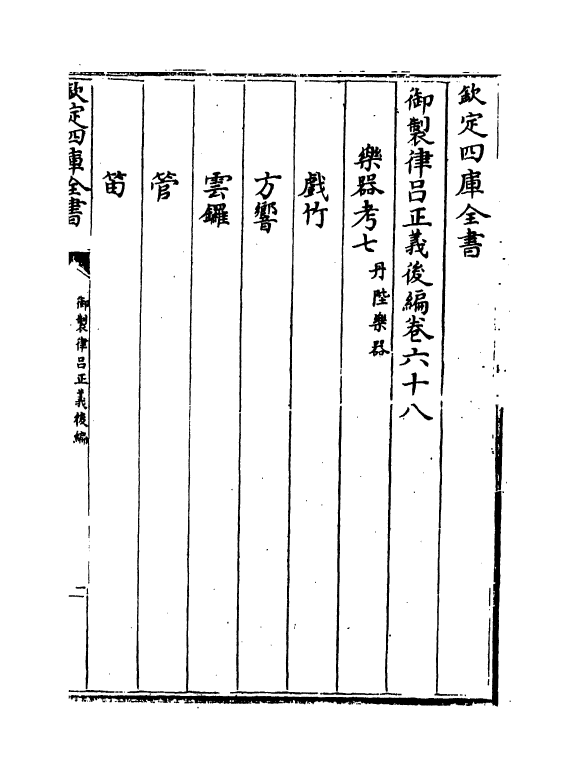 欽定四庫全書
御製律呂正義後編卷六十八
樂器考七丹陛樂器
戲竹
方響
雲鑼
管
笛
欽定四庫全書
御製律呂正義後編
二